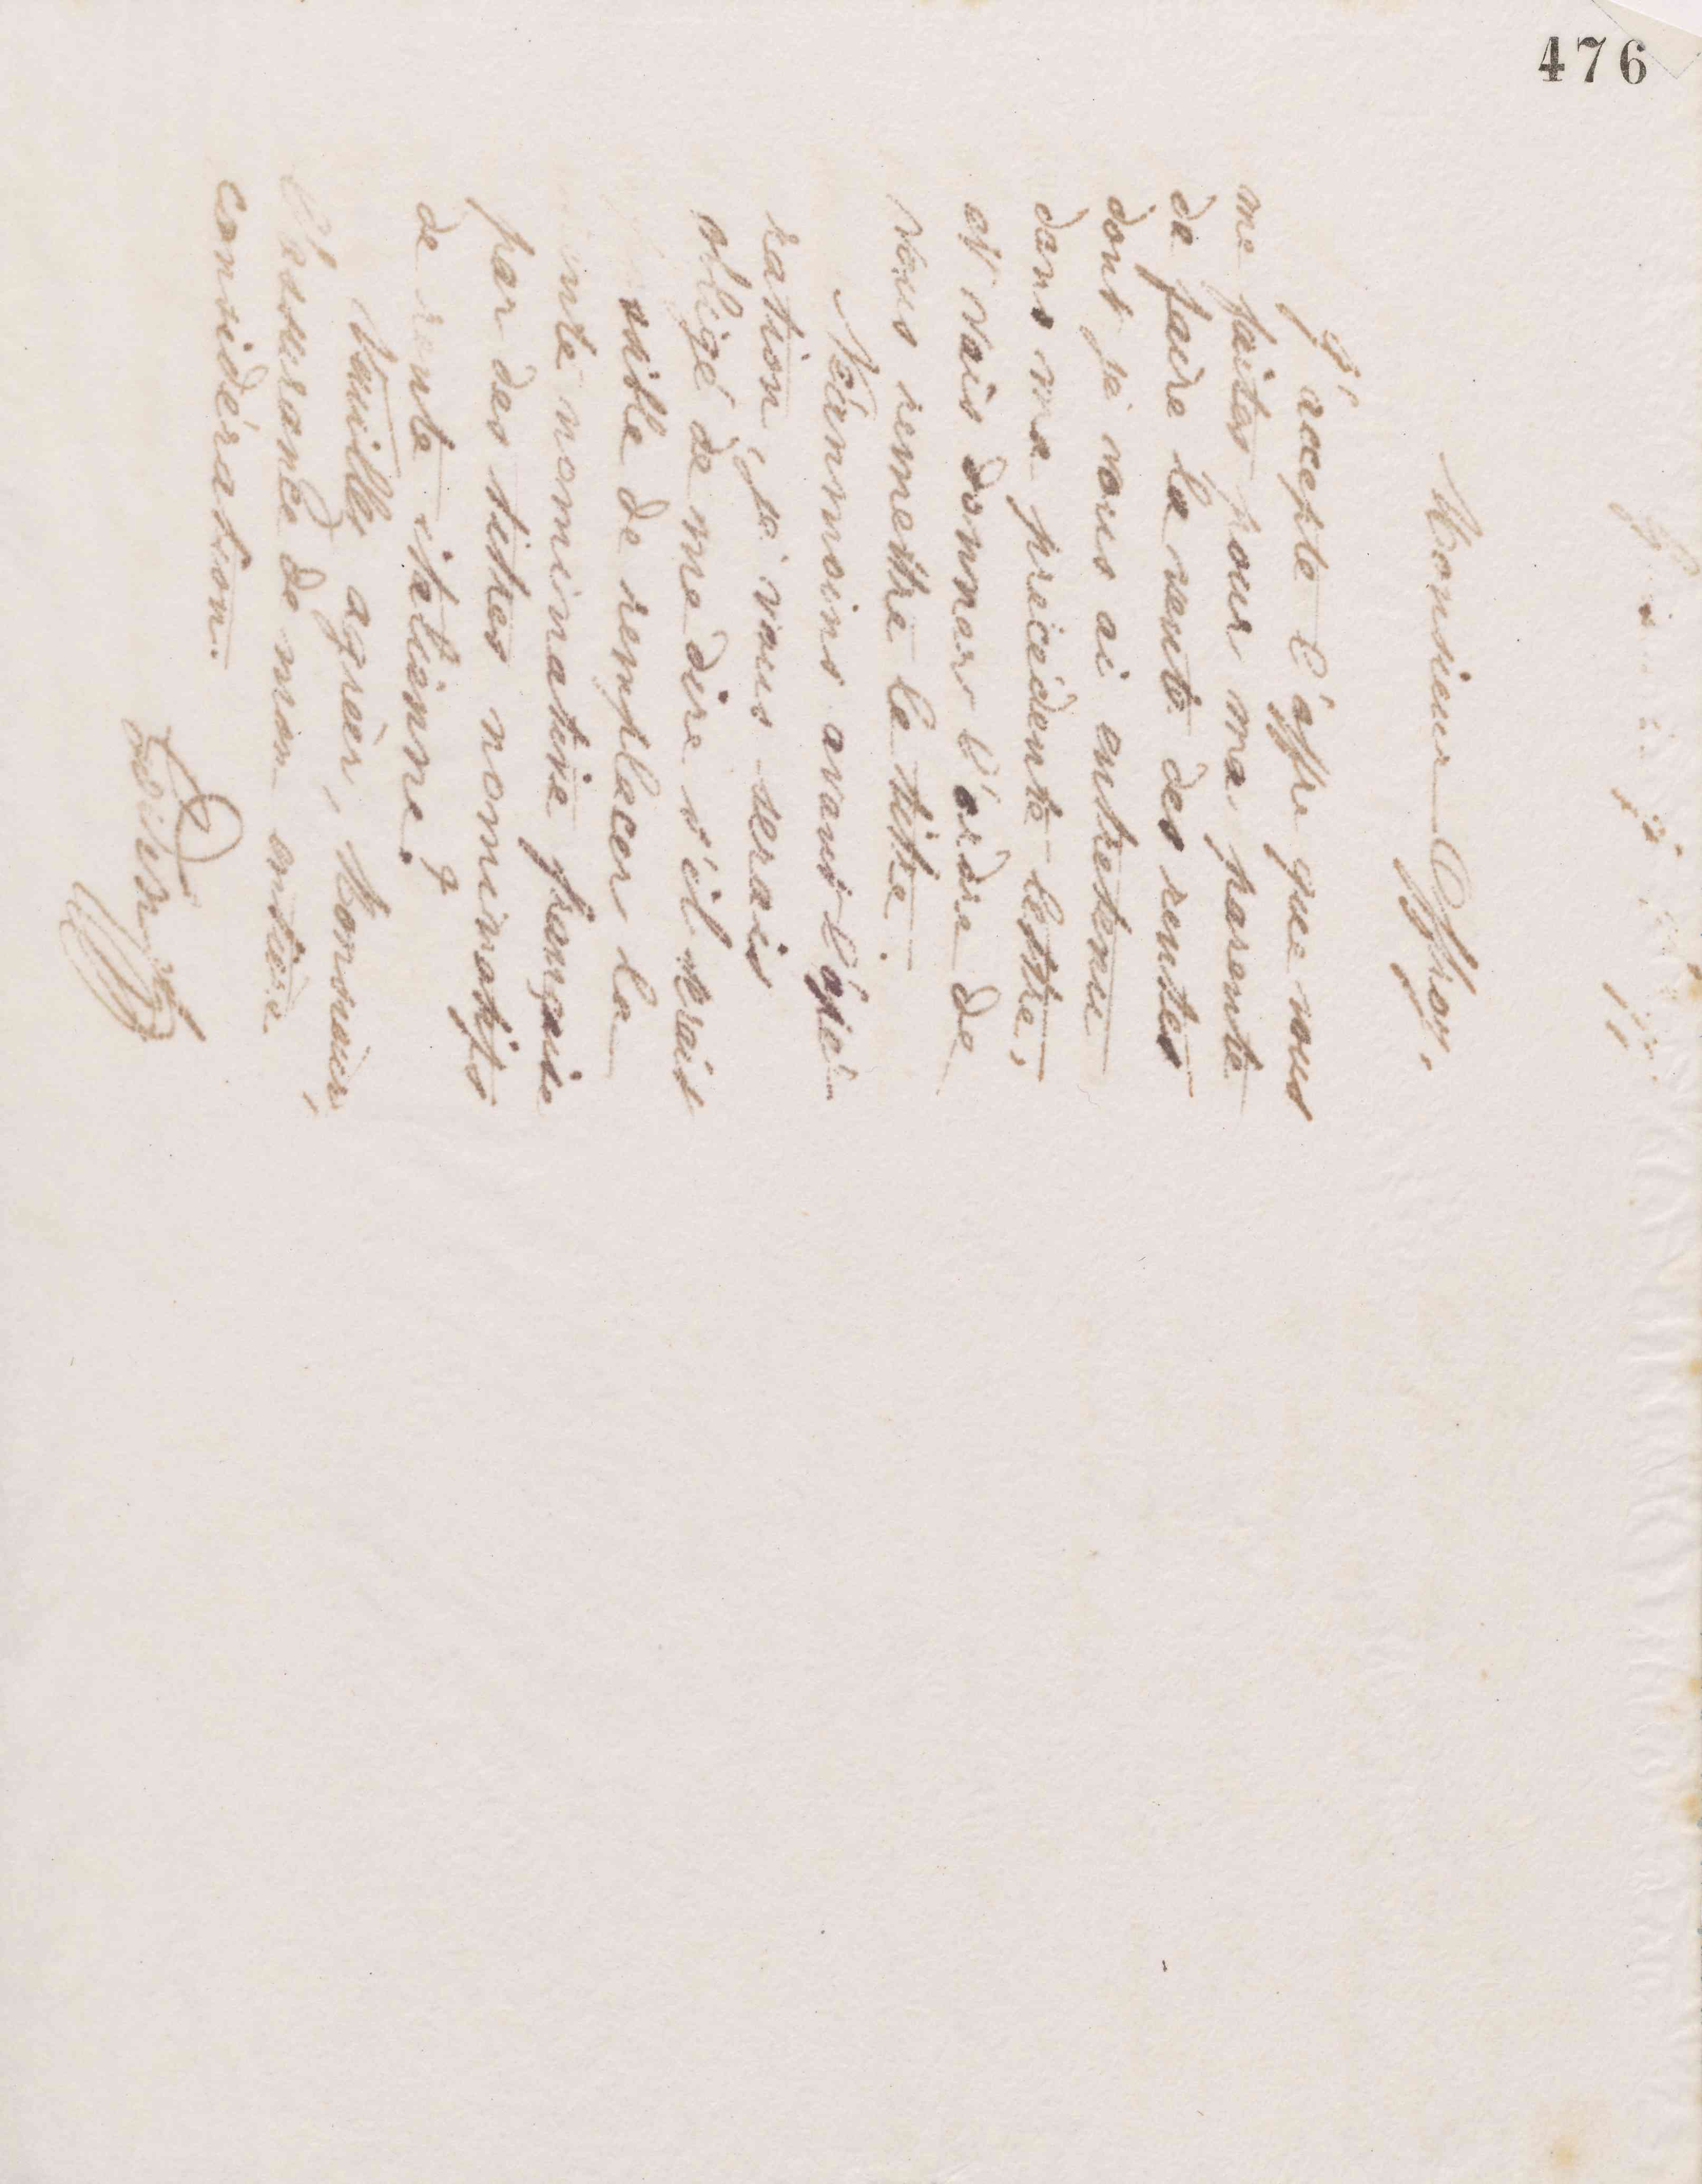 476
Monsieur Offroy,
J'accepte l'offre que vous
me faites pour ma parente
de faire la vente des rentes
dont je vous ai entretenu
dans ma précédente lettre,
et vais donner l'ordre de
vous remettre le titre.
Néanmoins avant l'opé-
ration, je vous serais
obligé de me dire s'il serait
de remplacer la
nominative française
par des titres nominatifs
de rente italienne?
Veuillez agréer, Monsieur,
l'assurance de mon entière
considération.
Godin